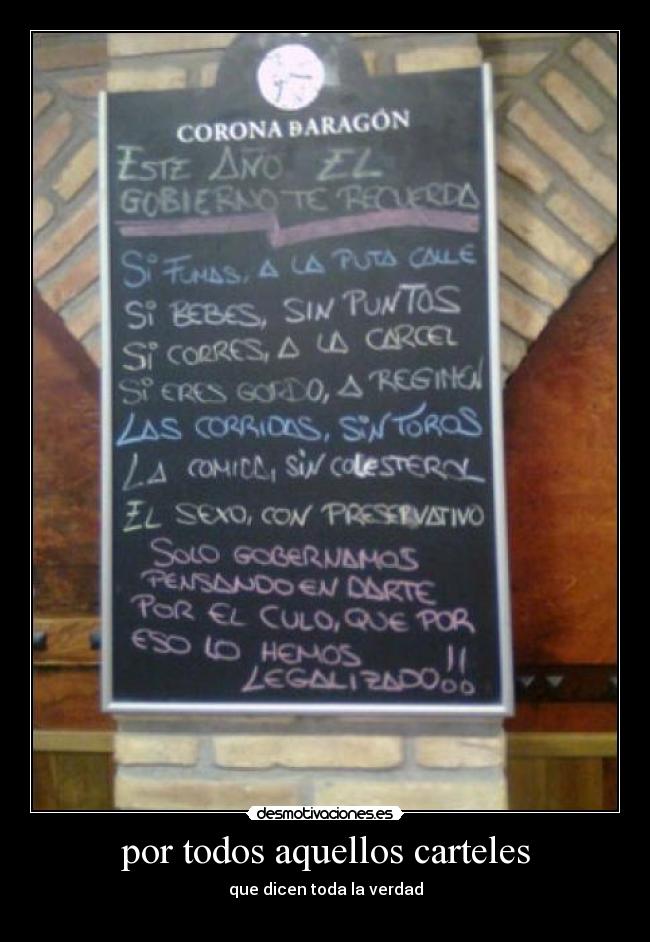 CORONA DARAGÓN
ESTE AÑO EL
GOBIERNO TE RECUERDA
Si FUMAS, A LA PUTA CALLE
Si BEBES, SIN PUNTOS
Si CORRES, A LA CARCEL
Si ERES GORDO, A REGIMEN
LAS CORRIDAS, SiN TOROS
LA COMIDA, SiN COLESTEROL
EL SEXO, CON PRESERVATIVO
SOLO GOBERNAMOS
PENSANDO EN DARTE
POR EL CULO, QUE POR
ESO LO HEMOS !!
LEGALIZADO
desmotivaciones.es
por todos aquellos carteles
que dicen toda la verdad